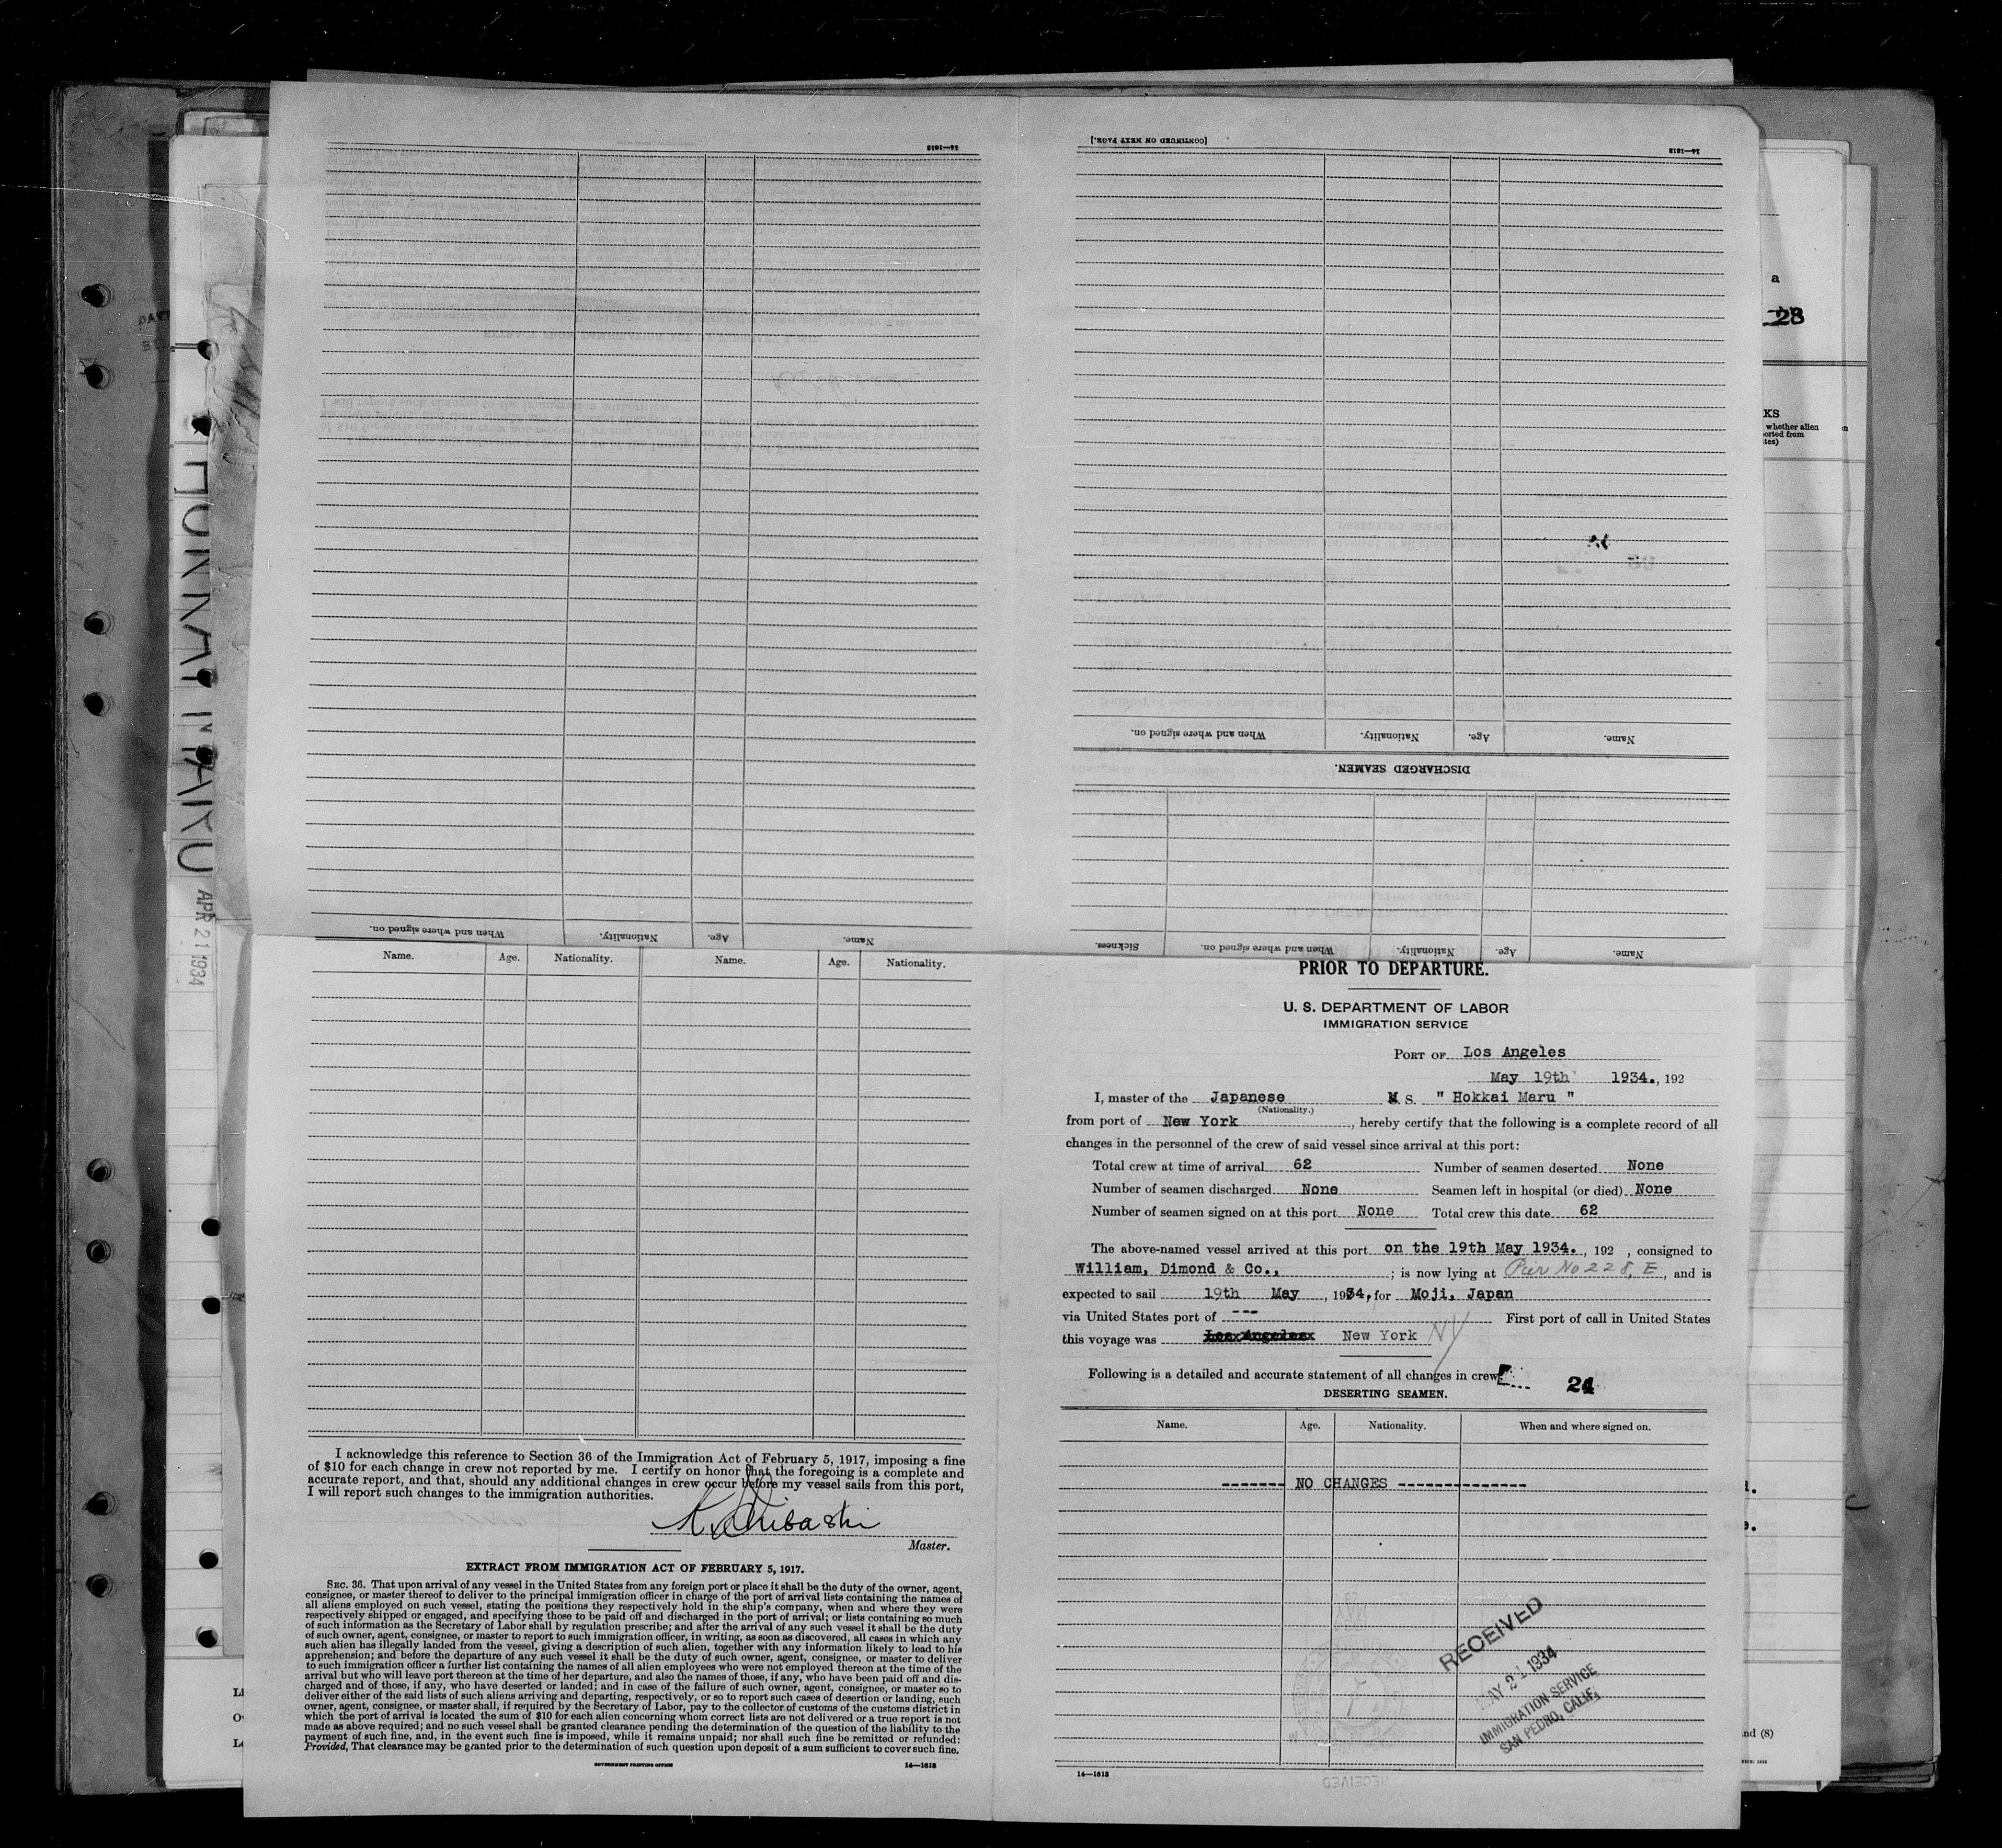 [CONTINUED ON NEXT PAGE.]
14—1613
14—1613
a
28
KS
whether alien
orted from
tes)
HOKKAI MARU
APR 21 1934
When and where signed on. Nationality. Age. Name.
DISCHARGED SEAMEN.
When and where signed on. Nationality. Age. Name.
Sickness. When and where signed on. Nationality. Age. Name.
Name. Age. Nationality. Name. Age. Nationality.
I acknowledge this reference to Section 36 of the Immigration Act of February 5, 1917, imposing a fine
of $10 for each change in crew not reported by me. I certify on honor that the foregoing is a complete and
accurate report, and that, should any additional changes in crew occur before my vessel sails from this port,
I will report such changes to the immigration authorities.
Master.
EXTRACT FROM IMMIGRATION ACT OF FEBRUARY 5, 1917.
SEC. 36. That upon arrival of any vessel in the United States from any foreign port or place it shall be the duty of the owner, agent,
consignee, or master thereof to deliver to the principal immigration officer in charge of the port of arrival lists containing the names of
all aliens employed on such vessel, stating the positions they respectively hold in the ship's company, when and where they were
respectively shipped or engaged, and specifying those to be paid off and discharged in the port of arrival; or lists containing so much
of such information as the Secretary of Labor shall by regulation prescribe; and after the arrival of any such vessel it shall be the duty
of such owner, agent, consignee, or master to report to such immigration officer, in writing, as soon as discovered, all cases in which any
such alien has illegally landed from the vessel, giving a description of such alien, together with any information likely to lead to his
apprehension; and before the departure of any such vessel it shall be the duty of such owner, agent, consignee, or master to deliver
to such immigration officer a further list containing the names of all alien employees who were not employed thereon at the time of the
arrival but who will leave port thereon at the time of her departure, and also the names of those, if any, who have been paid off and dis-
charged and of those, if any, who have deserted or landed; and in case of the failure of such owner, agent, consignee, or master so to
deliver either of the said lists of such aliens arriving and departing, respectively, or so to report such cases of desertion or landing, such
owner, agent, consignee, or master shall, if required by the Secretary of Labor, pay to the collector of customs of the customs district in
which the port of arrival is located the sum of $10 for each alien concerning whom correct lists are not delivered or a true report is not
made as above required; and no such vessel shall be granted clearance pending the determination of the question of the liability to the
payment of such fine, and, in the event such fine is imposed, while it remains unpaid; nor shall such fine be remitted or refunded:
Provided, That clearance may be granted prior to the determination of such question upon deposit of a sum sufficient to cover such fine.
GOVERNMENT PRINTING OFFICE 14—1613
PRIOR TO DEPARTURE.
U. S. DEPARTMENT OF LABOR
IMMIGRATION SERVICE
PORT OF Los Angeles
May 19th 1934., 192
I, master of the Japanese M S. " Hokkai Maru "
(Nationality.)
from port of New York, hereby certify that the following is a complete record of all
changes in the personnel of the crew of said vessel since arrival at this port:
Total crew at time of arrival 62 Number of seamen deserted None
Number of seamen discharged None Seamen left in hospital (or died) None
Number of seamen signed on at this port None Total crew this date 62
The above-named vessel arrived at this port on the 19th May 1934., 192 , consigned to
William, Dimond & Co., ; is now lying at Pier No 228, E, and is
expected to sail 19th May, 1934, for Moji, Japan
via United States port of --- First port of call in United States
this voyage was Los Angeles New York NY
Following is a detailed and accurate statement of all changes in crew:
24
DESERTING SEAMEN.
Name. Age. Nationality. When and where signed on.
------- NO CHANGES --------------
RECEIVED
MAY 21 1934
IMMIGRATION SERVICE
SAN PEDRO, CALIF.
14—1613
RECEIVED
nd (8)